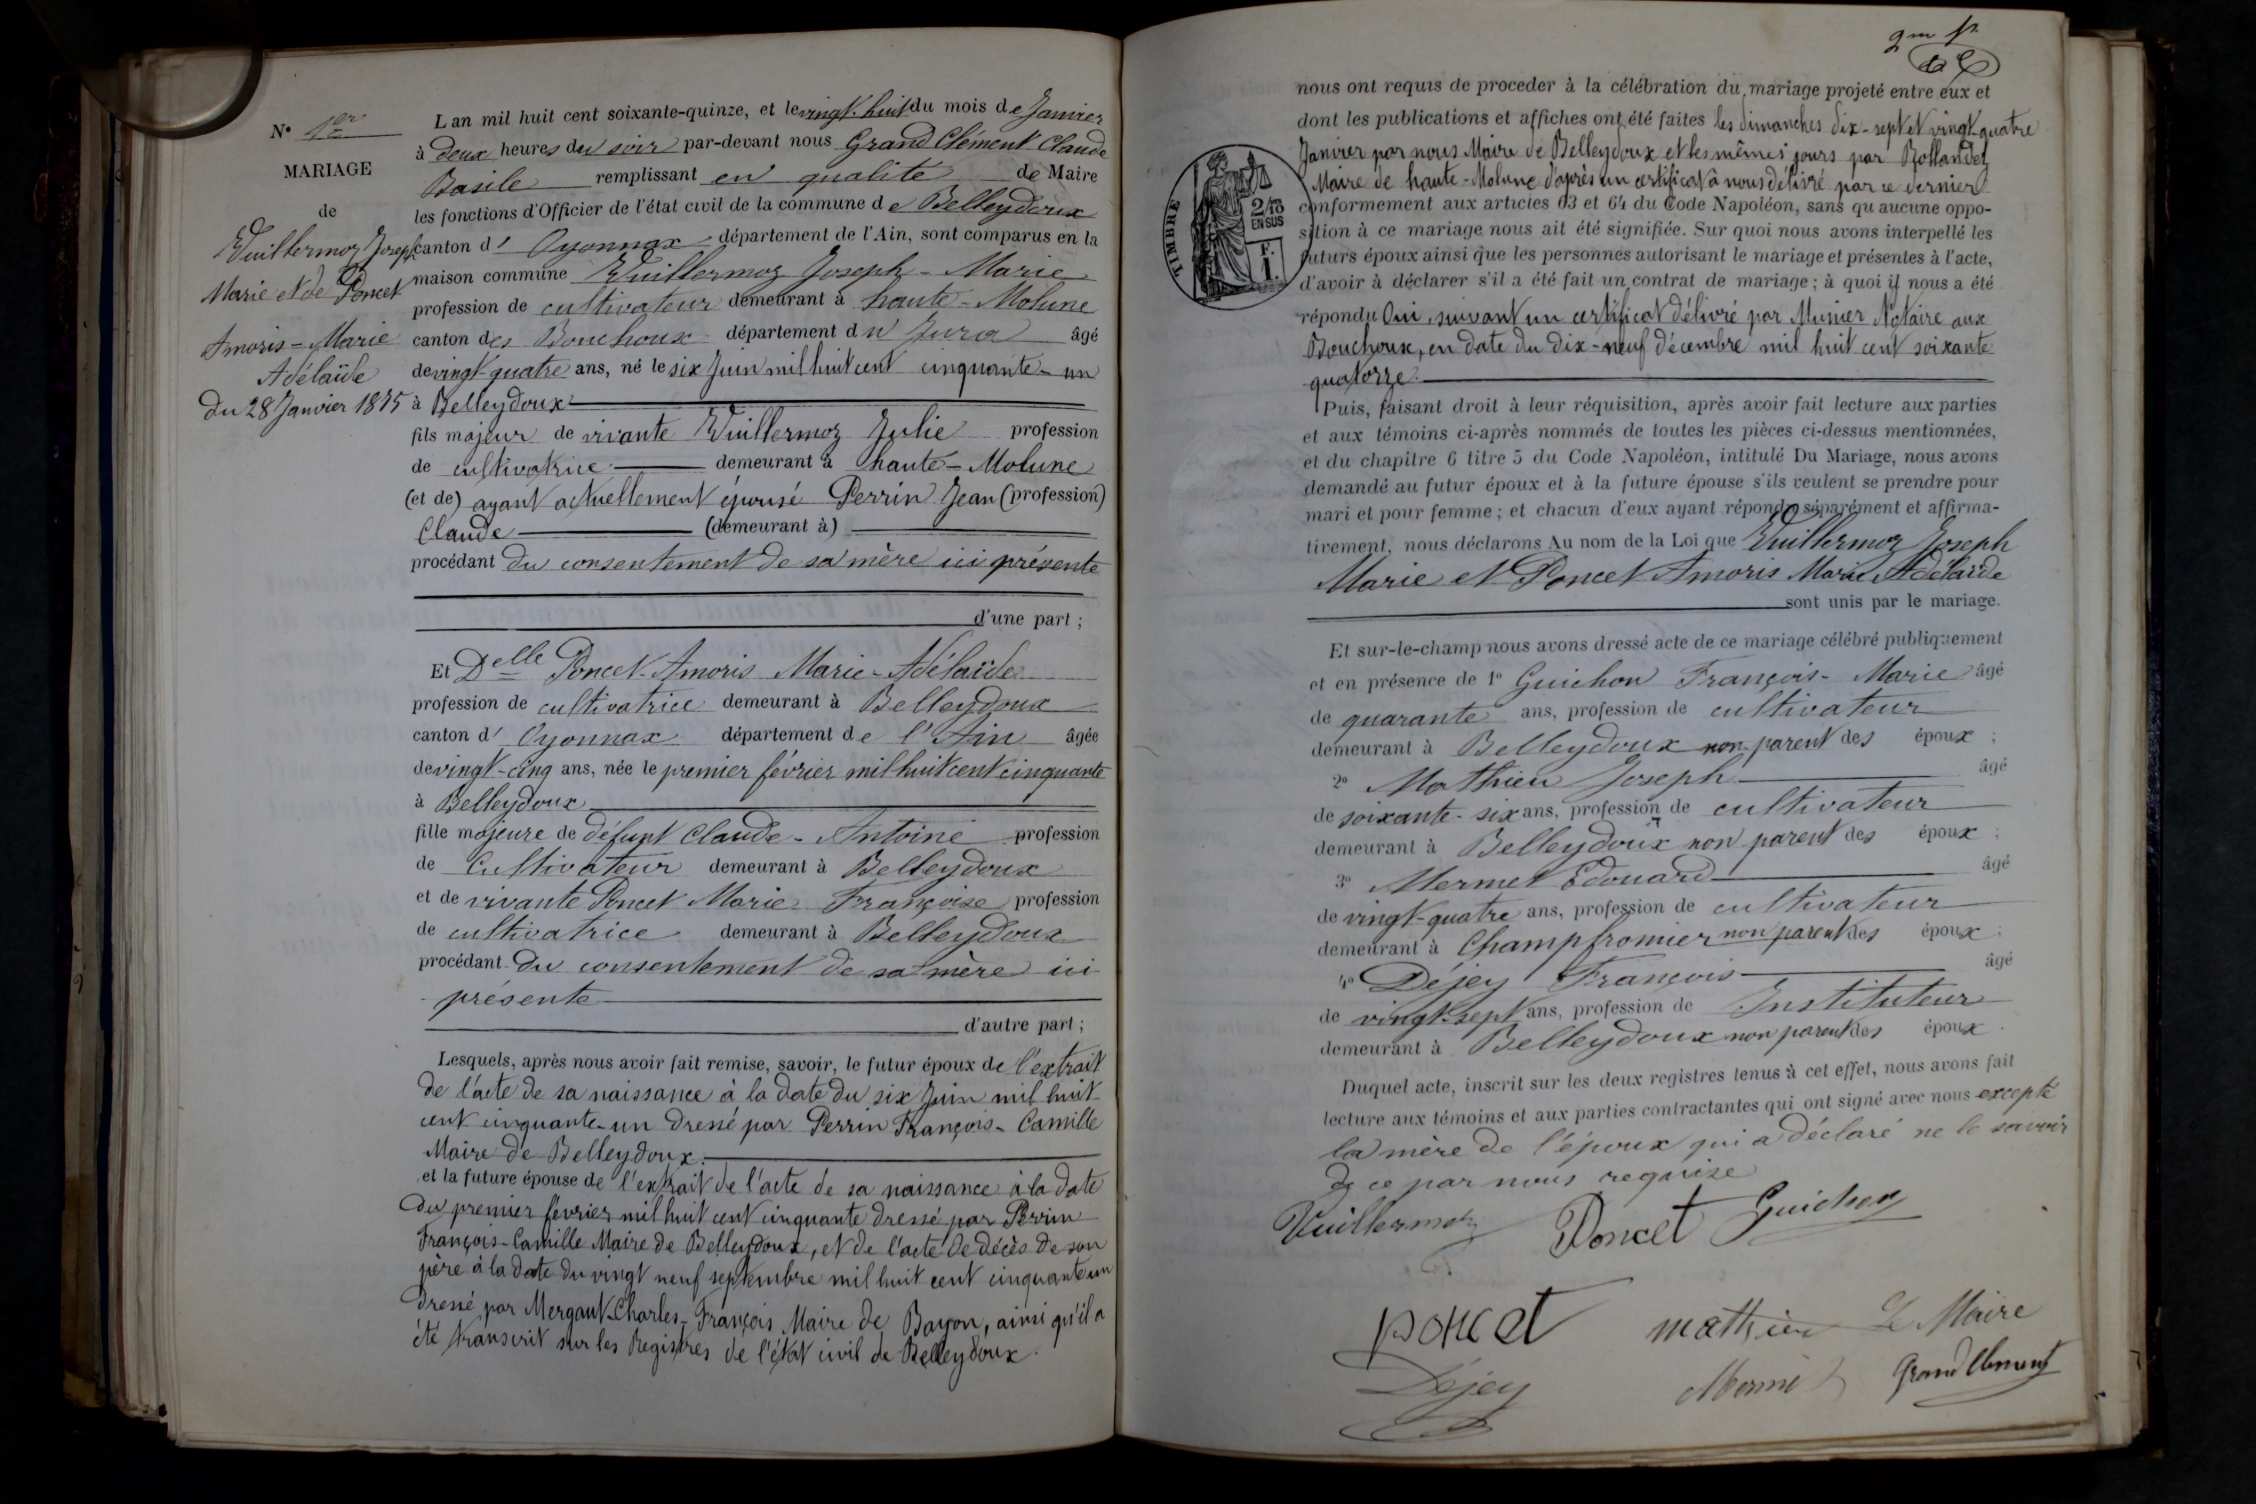 N° 1er
MARIAGE
de
Vuillermoz Joseph
Marie et de Poncet
Amoris-Marie
Adélaïde
du 28 Janvier 1875
L an mil huit cent soixante-quinze, et le vingt-huit du mois de Janvier
à deux heures du soir par-devant nous Grand Clément Claude
Basile remplissant en qualité de Maire
les fonctions d'Officier de l'état civil de la commune de Belleydoux
canton d' Oyonnax département de l'Ain, sont comparus en la
maison commune Vuillermoz Joseph-Marie
profession de cultivateur demeurant à haute-Molune
canton des Bouchoux département du Jura âgé
de vingt-quatre ans, né le six Juin mil huit cent cinquante-un
à Belleydoux
fils majeur de vivante Vuillermoz Julie profession
de cultivatrice demeurant à haute-Molune
(et de) ayant actuellement épousé Perrin Jean (profession)
Claude (demeurant à)
procédant du consentement de sa mère ici présente
d'une part ;
Et Delle Poncet-Amoris Marie-Adélaïde
profession de cultivatrice demeurant à Belleydoux
canton d' Oyonnax département de l'Ain âgée
de vingt-cinq ans, née le premier février mil huit cent cinquante
à Belleydoux
fille majeure de défunt Claude-Antoine profession
de Cultivateur demeurant à Belleydoux
et de vivante Poncet Marie-Françoise profession
de cultivatrice demeurant à Belleydoux
procédant du consentement de sa mère ici
présente
d'autre part ;
Lesquels, après nous avoir fait remise, savoir, le futur époux de l'extrait
de l'acte de sa naissance à la date du six Juin mil huit
cent cinquante-un dressé par Perrin François-Camille
Maire de Belleydoux.
et la future épouse de l'extrait de l'acte de sa naissance à la date
du premier février mil huit cent cinquante dressé par Perrin
François-Camille Maire de Belleydoux, et de l'acte de décès de son
père à la date du vingt neuf septembre mil huit cent cinquante un
dressé par Mergaut-Charles-François Maire de Bayon, ainsi qu'il a
été transcrit sur les Registres de l'état civil de Belleydoux.
nous ont requis de proceder à la célébration du mariage projeté entre eux et
dont les publications et affiches ont été faites les dimanches dix-sept et vingt-quatre
Janvier par nous Maire de Belleydoux et les mêmes jours par Rollandez
Maire de haute-Molune d'après un certificat à nous délivré par ce dernier
conformement aux articles 63 et 64 du Code Napoléon, sans qu aucune oppo-
sition à ce mariage nous ait été signifiée. Sur quoi nous avons interpellé les
futurs époux ainsi que les personnes autorisant le mariage et présentes à l'acte,
d'avoir à déclarer s'il a été fait un contrat de mariage ; à quoi il nous a été
répondu Oui, suivant un certificat délivré par Munier Notaire aux
Bouchoux, en date du dix-neuf décembre mil huit cent soixante
quatorze.
TIMBRE
2/10
EN SUS
F.
1.
Puis, faisant droit à leur réquisition, après avoir fait lecture aux parties
et aux témoins ci-après nommés de toutes les pièces ci-dessus mentionnées,
et du chapitre 6 titre 5 du Code Napoléon, intitulé Du Mariage, nous avons
demandé au futur époux et à la future épouse s'ils veulent se prendre pour
mari et pour femme ; et chacun d'eux ayant répondu séparément et affirma-
tivement, nous déclarons Au nom de la Loi que Vuillermoz Joseph
Marie et Poncet Amoris Marie Adélaïde
sont unis par le mariage.
Et sur-le-champ nous avons dressé acte de ce mariage célébré publiquement
et en présence de 1° Guichon François-Marie âgé
de quarante ans, profession de cultivateur
demeurant à Belleydoux non parent des époux ;
2° Mathieu Joseph âgé
de soixante-six ans, profession de cultivateur
demeurant à Belleydoux non parent des époux ;
3° Mermet Edouard âgé
de vingt-quatre ans, profession de cultivateur
demeurant à Champfromier non parent des époux ;
4° Déjey François âgé
de vingt-sept ans, profession de Instituteur
demeurant à Belleydoux non parent des époux.
Duquel acte, inscrit sur les deux registres tenus à cet effet, nous avons fait
lecture aux témoins et aux parties contractantes qui ont signé avec nous excepté
la mère de l'époux qui a déclaré ne le savoir
de ce par nous requise
Vuillermoz Poncet Guichon
poncet mathieu Le Maire
Déjey Mermet Grand Clément